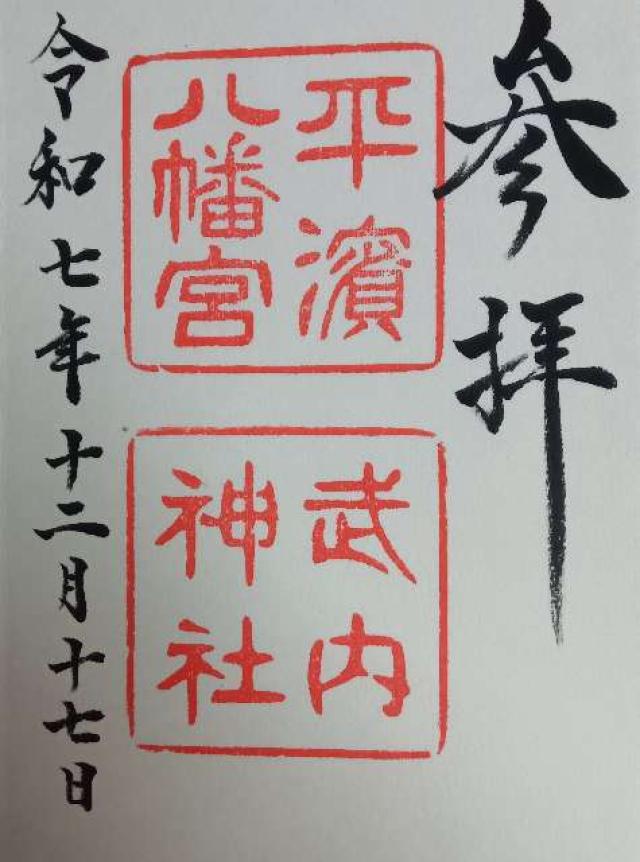 参拝
平濱
八幡宮
武内
神社
令和七年十二月十七日